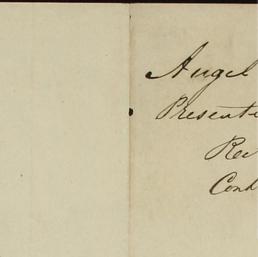 Angel
Presente
Rec
Cond